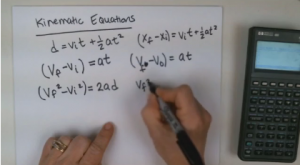 Kinematic Equations
d = Vit + ½at² (Xf - Xi) = Vit + ½at²
(Vf - Vi) = at (Vf - V0) = at
(Vf² - Vi²) = 2ad Vf